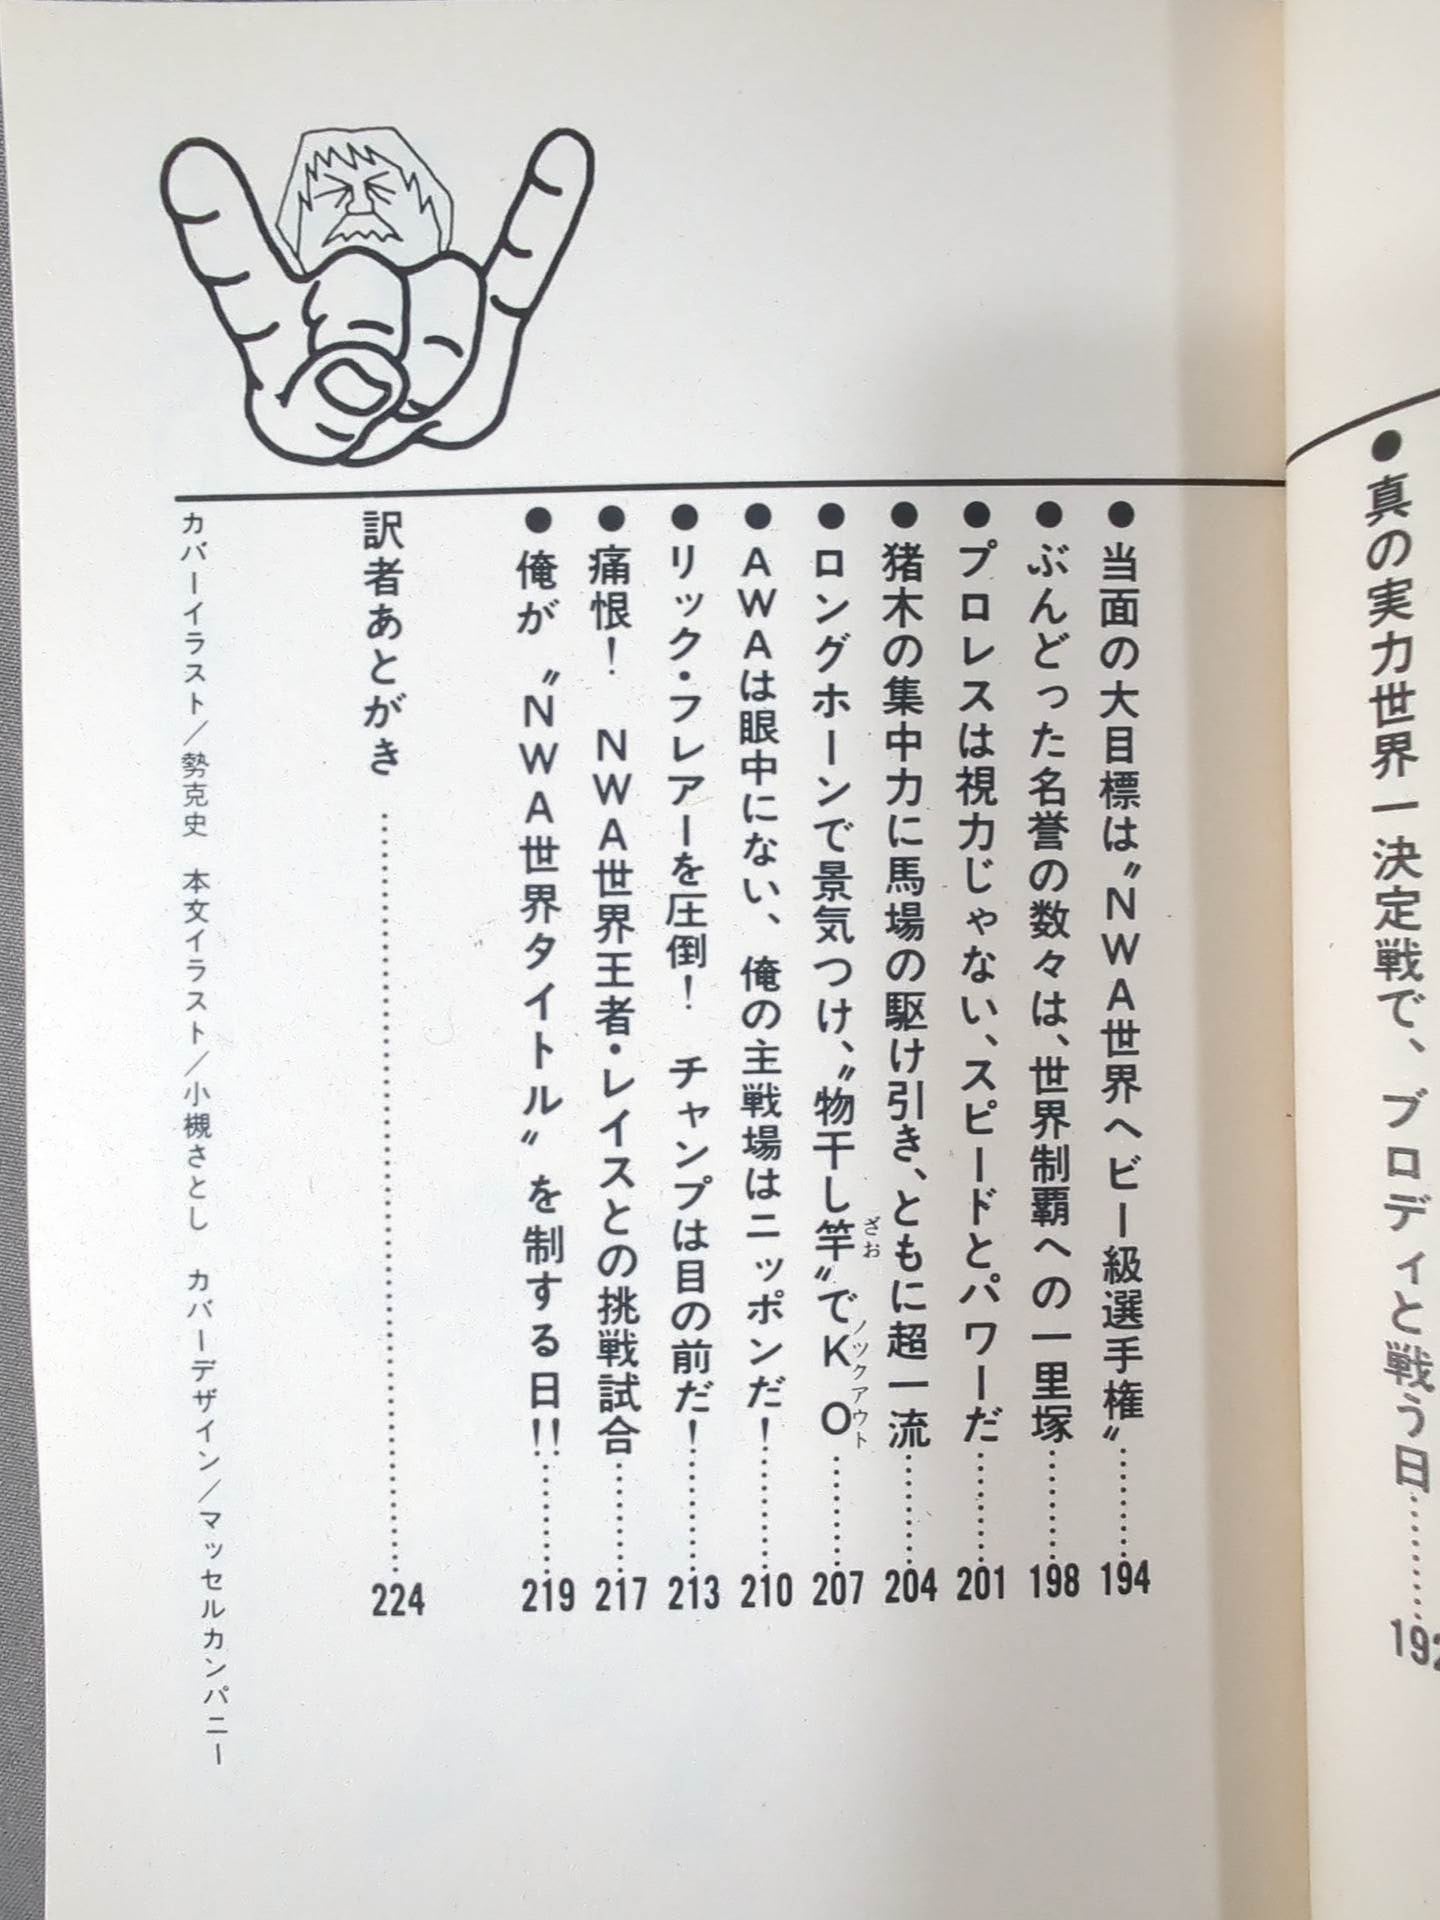 ●真の実力世界一決定戦で、ブロディと戦う日…………192
●当面の大目標は〝NWA世界ヘビー級選手権〟…………194
●ぶんどった名誉の数々は、世界制覇への一里塚…………198
●プロレスは視力じゃない、スピードとパワーだ…………201
●猪木の集中力に馬場の駆け引き、ともに超一流…………204
●ロングホーンで景気つけ、〝物干し竿〟でKO…………207
ざお
ノックアウト
●AWAは眼中にない、俺の主戦場はニッポンだ!…………210
●リック・フレアーを圧倒! チャンプは目の前だ!…………213
●痛恨! NWA世界王者・レイスとの挑戦試合…………217
●俺が〝NWA世界タイトル〟を制する日!!…………219
訳者あとがき…………224
カバーイラスト/勢克史 本文イラスト/小槻さとし カバーデザイン/マッセルカンパニー